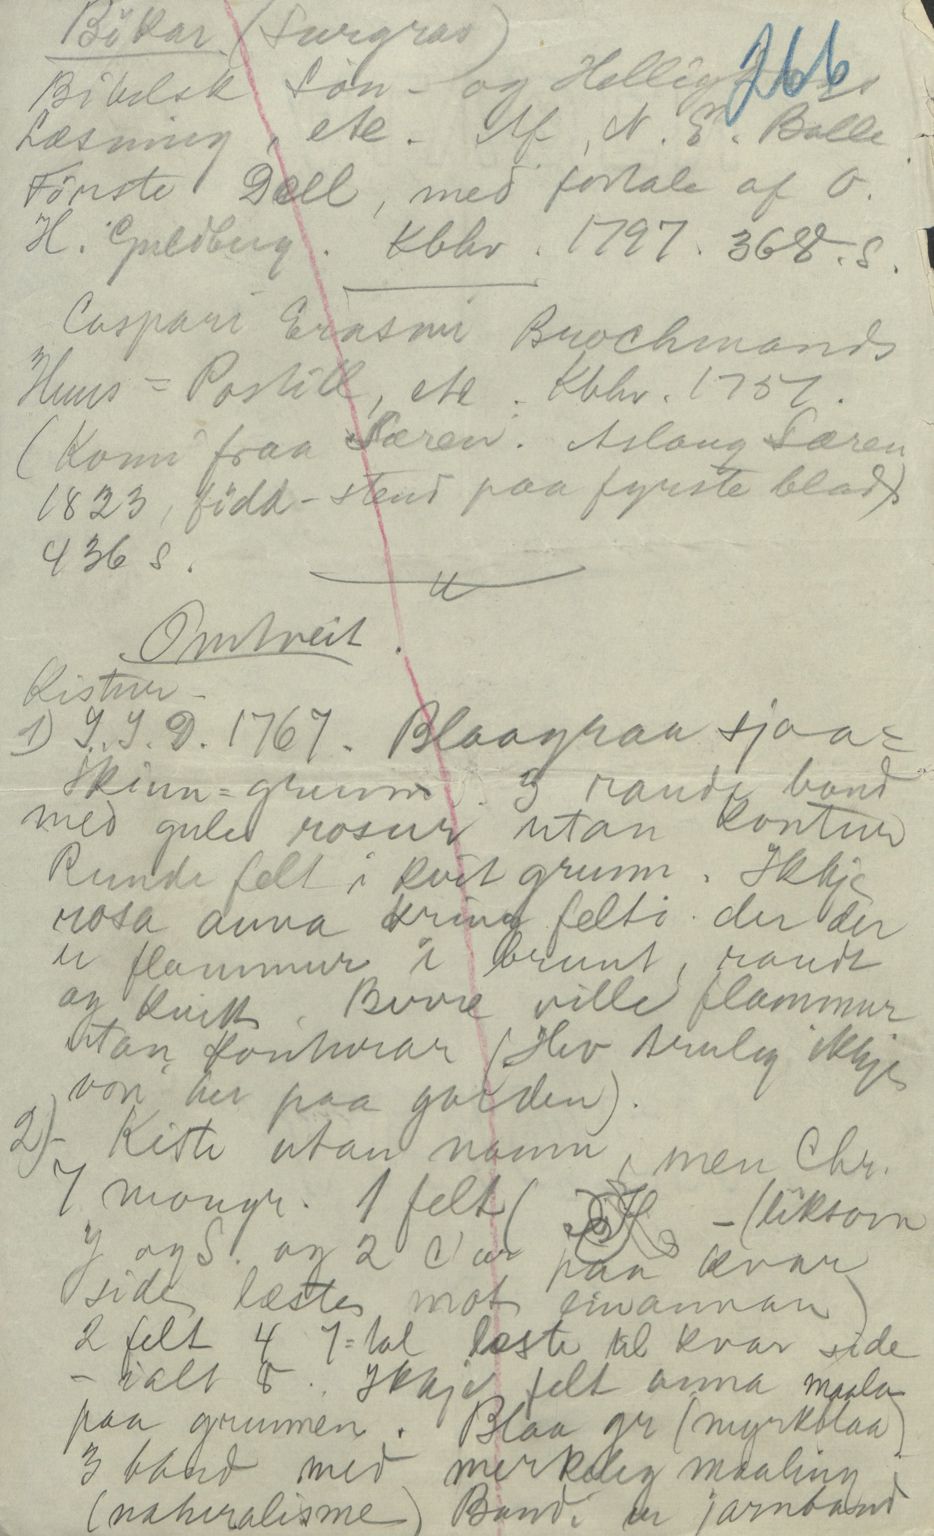 Bökar (Surgrav) 266
Bibelsk Søn- og Helligdags
Læsning, etc. Af N. E. Balle
Förste Deel, med fortale af O.
H. Guldberg. Kbhv. 1797. 368. s.
Caspari Erasmi Brochmands
Huus=Postill, etc. Kbhv. 1757.
(Komi fraa Særen. Aslaug Særen
1823, född - stend paa fyrste blad)
436 s.
Omtveit.
Kistur -
1) J. J. D. 1767. Blaagraa sjaa=
skinn=grunn. 3 raude band
med gule rosur utan kontur
Runde felt i kvit grunn. Ikkje
rosa anna kring felti der der
er flammur i brunt, raudt
og kvitt. Berre ville flammur
utan konturar (Hev truleg ikkje
vori her paa garden).
2)- Kiste utan namn, men Chr.
7 monogr. 1 felt ( - (liksom
J og S. og 2 C'ar paa kvar
side læste mot einannan)
2 felt 4 7=tal læste til kvar side
- ialt 8. Ikkje felt anna maala
paa grunnen. Blaa gr (myrkblaa)
3 band med merkeleg maaling
(naturalisme) Bandi er jarnband